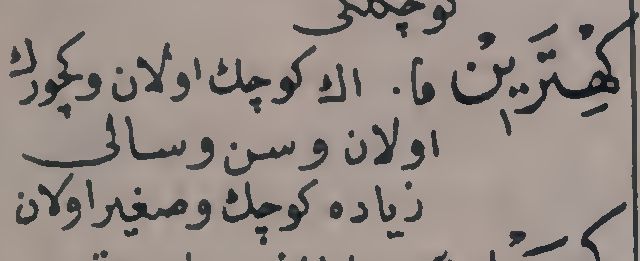 كوچكلكى
كِهْتَرِينْ فا. اك كوچك اولان وكچورك
اولان و سن و سالى
زياده كوچك و صغير اولان